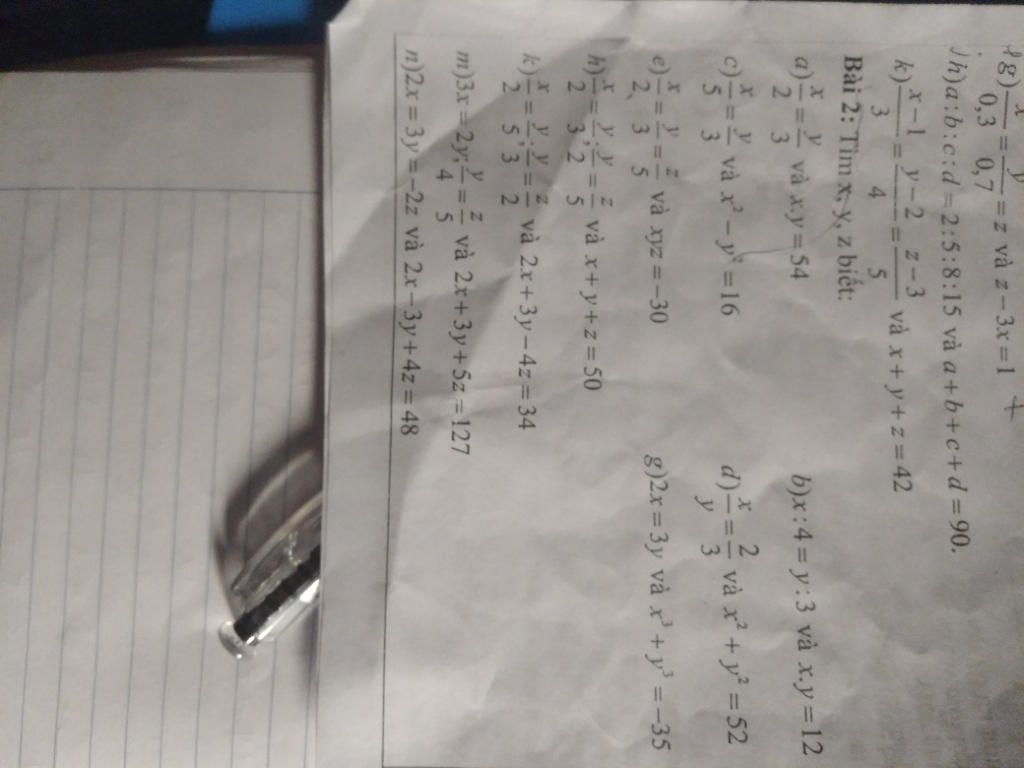 g) x/0,3 = y/0,7 = z và z − 3x = 1
h) a : b : c : d = 2 : 5 : 8 : 15 và a + b + c + d = 90.
k) (x − 1)/3 = (y − 2)/4 = (z − 3)/5 và x + y + z = 42
Bài 2: Tìm x, y, z biết:
a) x/2 = y/3 và x.y = 54 b) x : 4 = y : 3 và x.y = 12
c) x/5 = y/3 và x² − y² = 16 d) x/y = 2/3 và x² + y² = 52
e) x/2 = y/3 = z/5 và xyz = −30 g) 2x = 3y và x³ + y³ = −35
h) x/2 = y/3; y/2 = z/5 và x + y + z = 50
k) x/2 = y/5; y/3 = z/2 và 2x + 3y − 4z = 34
m) 3x = 2y; y/4 = z/5 và 2x + 3y + 5z = 127
n) 2x = 3y = −2z và 2x − 3y + 4z = 48